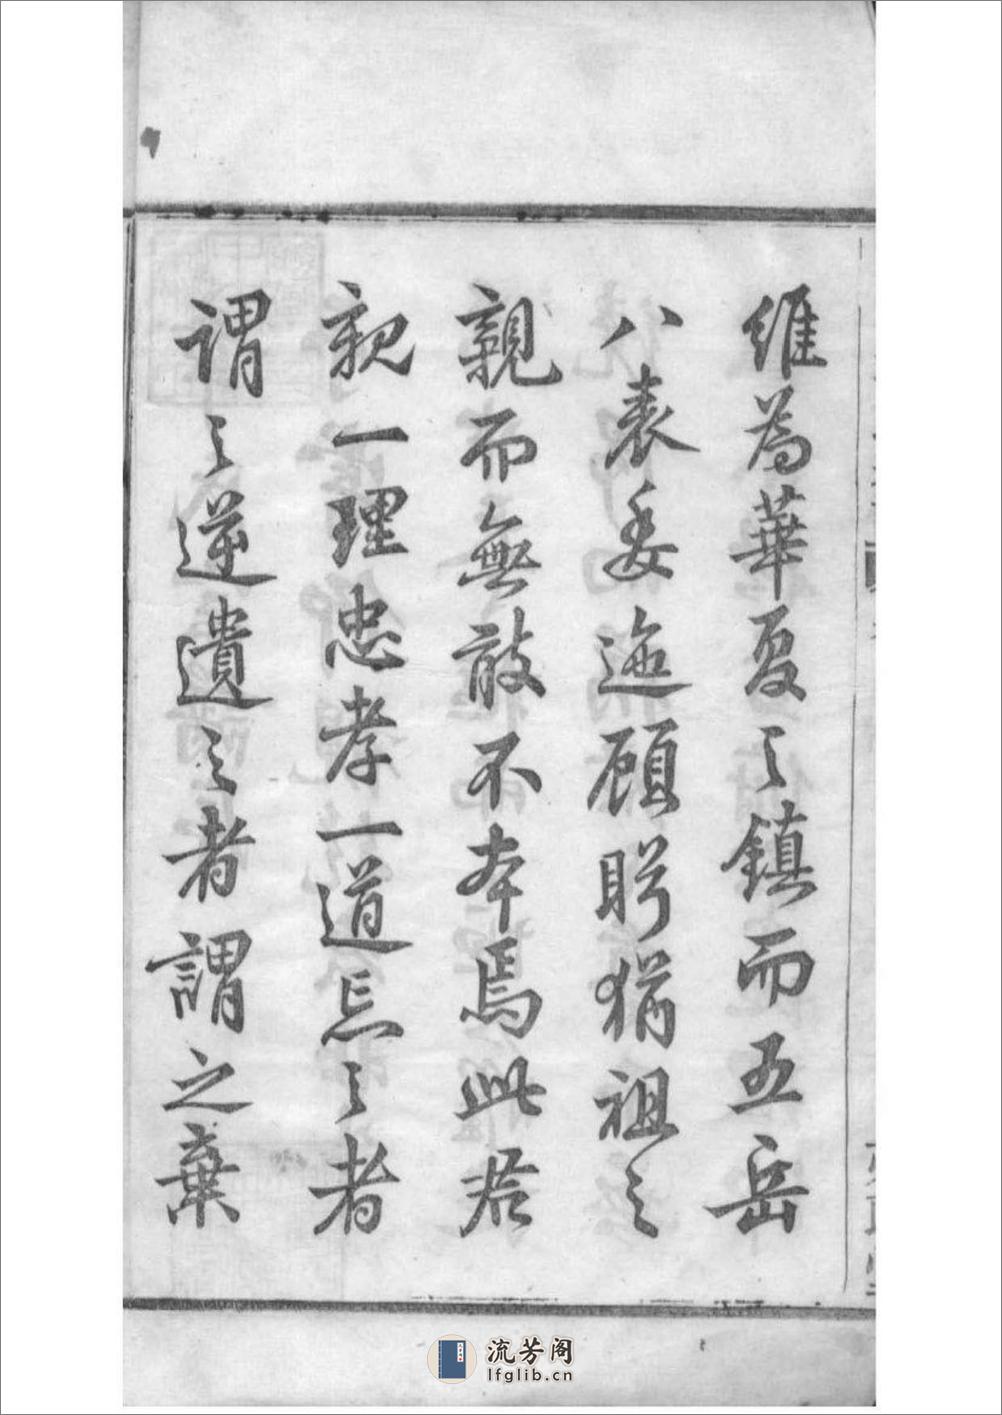 維為華夏之鎮而五岳
八表委迤顧盼猶祖之
親而無敢不本焉此君
親一理忠孝一道忘之者
謂之逆遺之者謂之棄
流芳阁
lfglib.cn